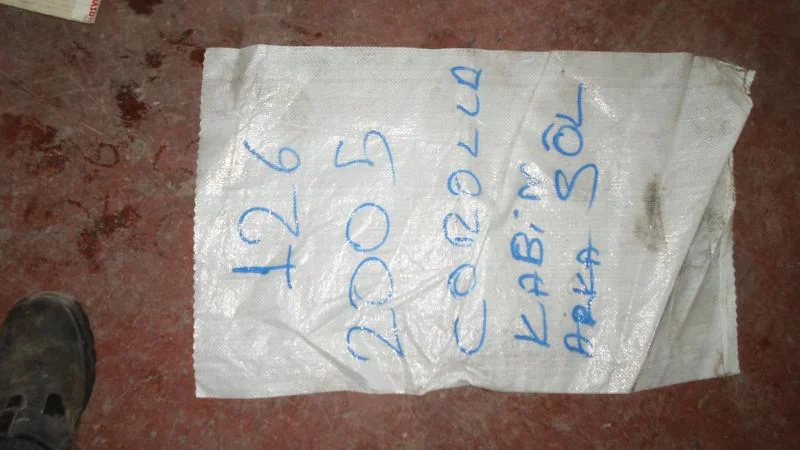 126
2005
COROLLA
KABiN
ARKA SOL